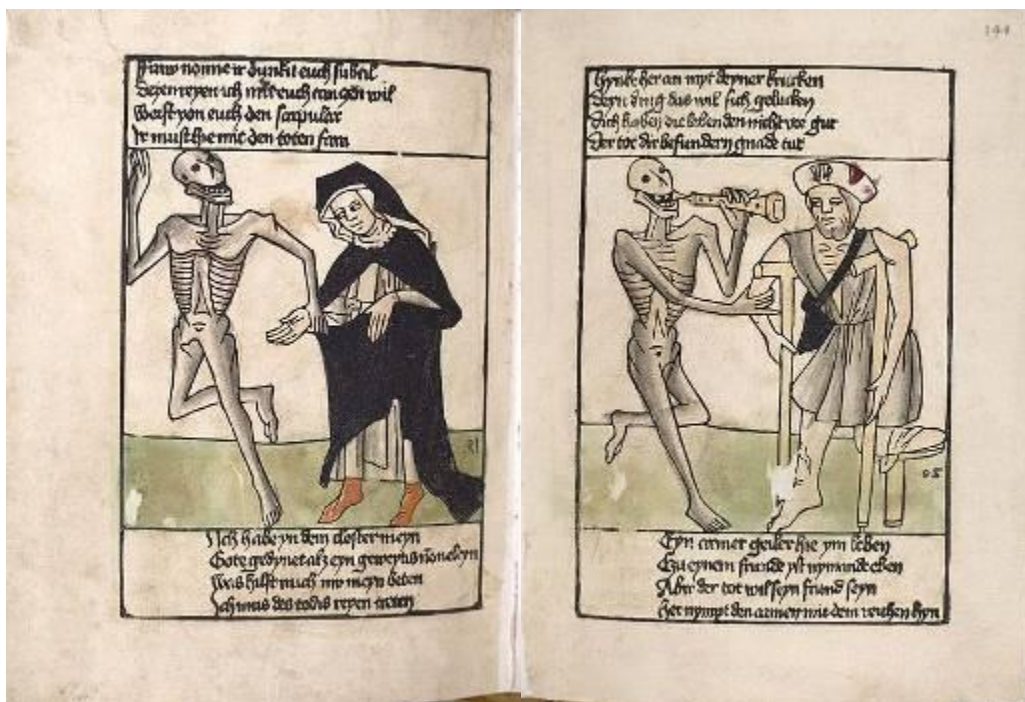 nonne ir dunkit euch subtil
reyen ich mit euch wil
von euch den scapular
Ir must hie mit den toten farn
Ich habe yn dem closter meyn
Gote gedynet als eyn
Was hilft mich nw meyn beten
Ich mus des todis reyen treten
Hynke her an myt deyner krucken
Deyn ding das wil sich gelucken
Dich haben die lebenden nicht vor gut
Der tot dir besundern gnade tut
Eyn armer geiler hie ym leben
Czu eynem frunde yst nymande eben
Abir der tot wil seyn frund seyn
Her nympt den armen mit dem reichen hyn